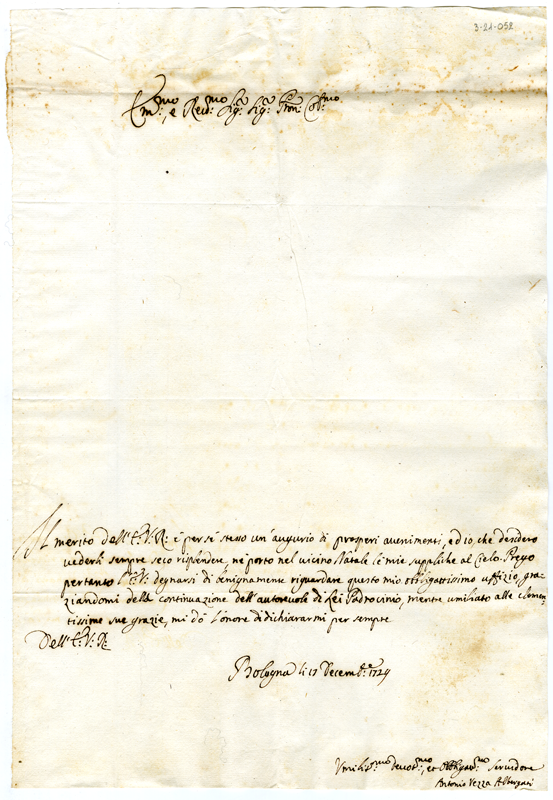 3-21-052
Em:mo, e Rev:mo Sig:r Sig:r Pron: Col:mo
Il merito dell'E:V:R: è per sé stesso un'augurio di prosperi avenimenti, ed io, che desidero
vederli sempre seco risplendere, ne porto nel vicino Natale le mie suppliche al Cielo. Prego
pertanto l'E:V: degnarsi di benignamente riguardare questo mio obligatissimo uffizio, gra-
ziandomi della continuazione dell'autorevole di Lei Padrocinio, mentre umiliato alle clemen-
tissime sue grazie, mi dò l'onore di dichiararmi per sempre
Dell'E:V:R:
Bologna li 17 Decemb:e 1729
Umilis:mo Devot:mo, et Obligat:mo Servidore
Antonio Vezza Albergati